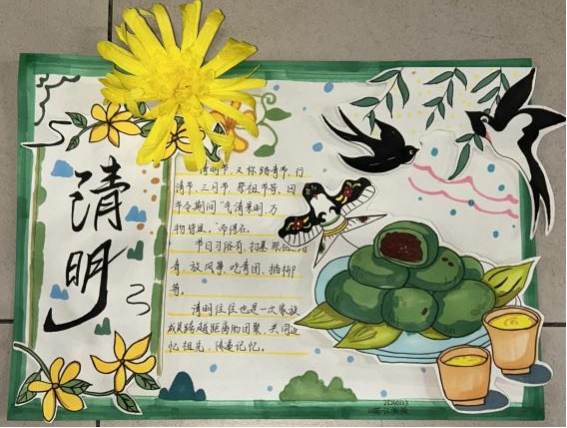 清明
清明节，又称踏青节、行
清节、三月节、祭祖节等，因
节令期间“气清景明、万
物皆显”而得名。
节日习俗有：扫墓
青、放风筝、吃青团、插柳
等。
清明往往也是一次家族
或是跨越距离的团聚，共同追
忆祖先，传递记忆。